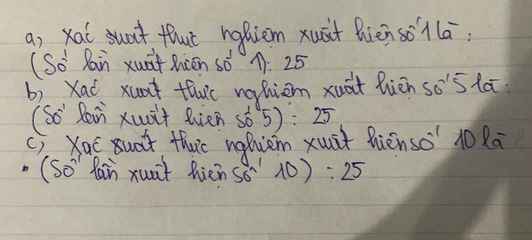 a, Xác suất thực nghiệm xuất hiện số 1 là:
(Số lần xuất hiện số 1): 25
b, Xác xuất thực nghiệm xuất hiện số 5 là:
(Số lần xuất hiện số 5): 25
c, Xạc suất thực nghiệm xuất hiện số 10 là
(Số lần xuất hiện số 10) : 25